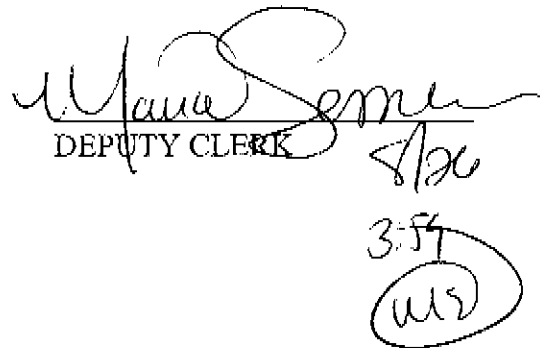 Maria
DEPUTY CLERK
8/26
3:54
MS